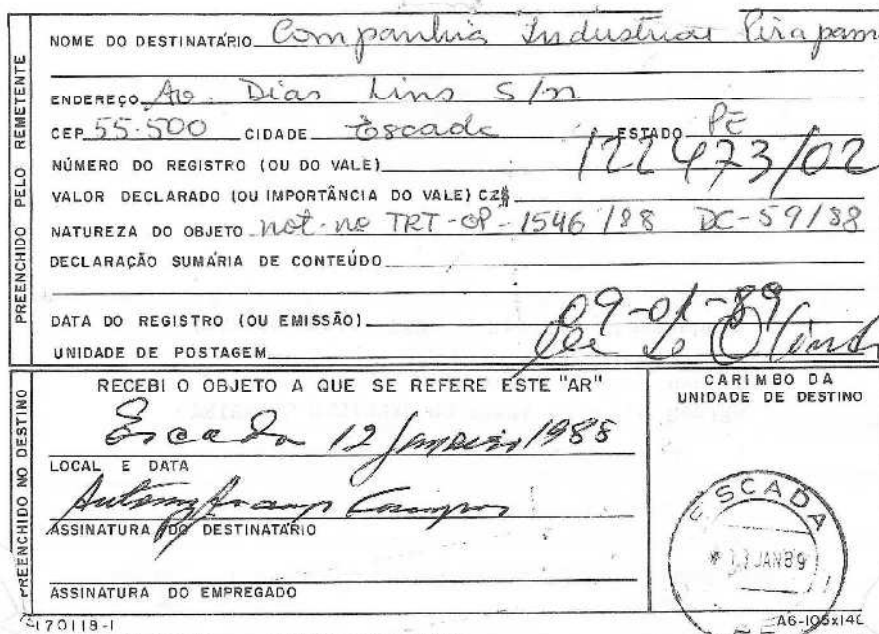 PREENCHIDO PELO REMETENTE
NOME DO DESTINATÁRIO Companhia Industrial Pirapam
ENDEREÇO Av. Dias Lins S/n
CEP 55.500 CIDADE Escada ESTADO PE
NÚMERO DO REGISTRO (OU DO VALE) 122473/02
VALOR DECLARADO (OU IMPORTÂNCIA DO VALE) CZ$
NATUREZA DO OBJETO not. nº TRT-GP-1546/88 DC-59/88
DECLARAÇÃO SUMÁRIA DE CONTEÚDO
DATA DO REGISTRO (OU EMISSÃO) 09-01-89
UNIDADE DE POSTAGEM
PREENCHIDO NO DESTINO
RECEBI O OBJETO A QUE SE REFERE ESTE "AR"
Escada 12 Janeiro 1988
LOCAL E DATA
Campos
ASSINATURA DO DESTINATÁRIO
ASSINATURA DO EMPREGADO
CARIMBO DA
UNIDADE DE DESTINO
ESCADA
JAN 89
170118-1
A6-105x14